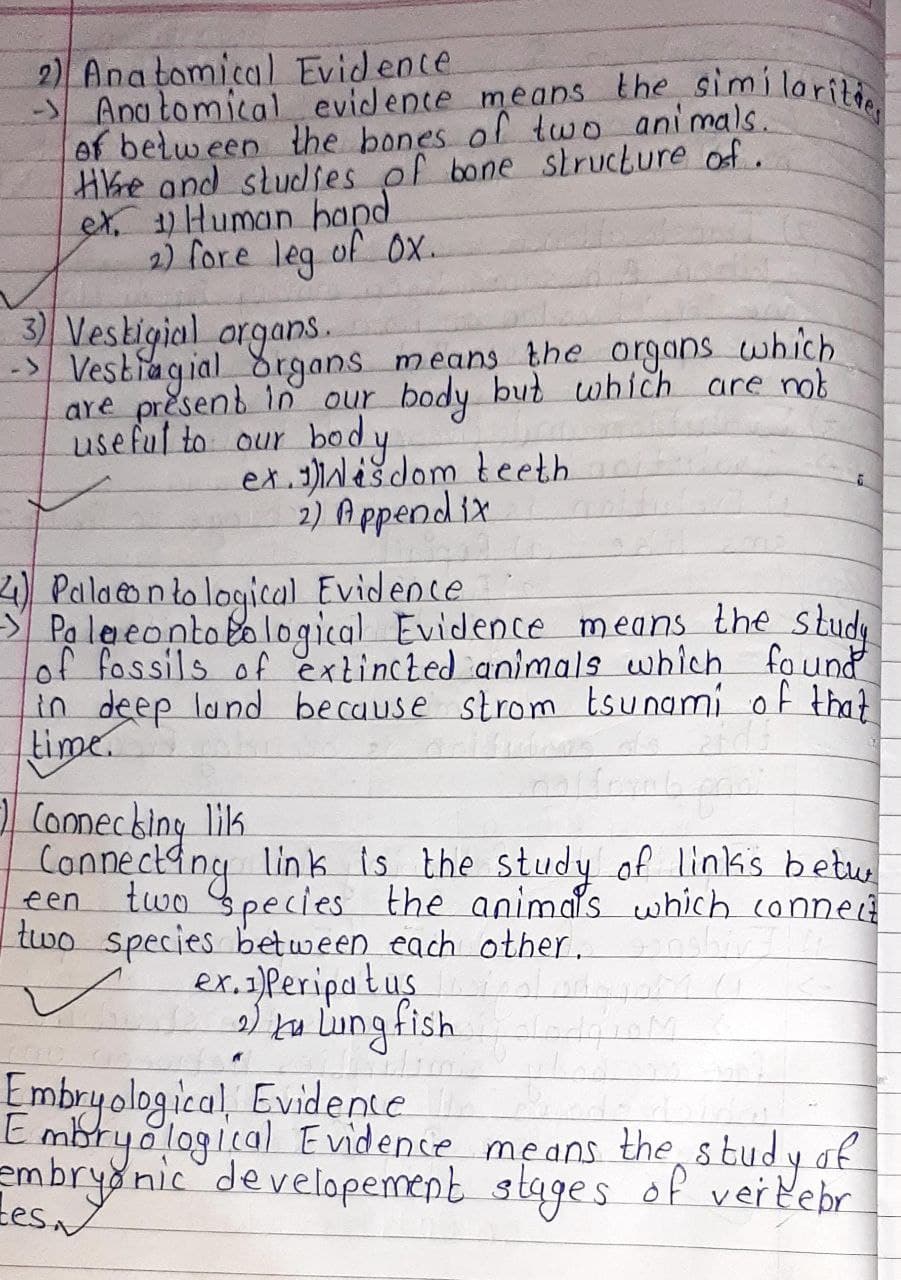 2) Anatomical Evidence
-> Anatomical evidence means the similarities
of between the bones of two animals.
and studies of bone structure of.
ex. 1) Human hand
2) fore leg of ox.
3) Vestigial organs.
-> Vestiagial organs means the organs which
are present in our body but which are not
useful to our body
ex. 1) Wisdom teeth
2) Appendix
4) Palaeontological Evidence
-> Palaeontological Evidence means the study
of fossils of extincted animals which found
in deep land because strom tsunami of that
time.
) Connecting lik
Connecting link is the study of links betw
een two species the animals which connect
two species between each other.
ex. 1) Peripatus
2) Lungfish
Embryological Evidence
Embryological Evidence means the study of
embryonic developement stages of vertebr
tes.